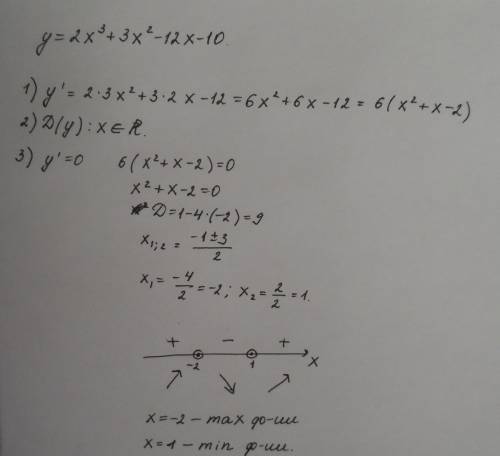 y = 2x³ + 3x² - 12x - 10.
1) y' = 2·3x² + 3·2x - 12 = 6x² + 6x - 12 = 6(x² + x - 2)
2) D(y): x ∈ R.
3) y' = 0   6(x² + x - 2) = 0
x² + x - 2 = 0
D = 1 - 4·(-2) = 9
x₁;₂ = (-1 ± 3)/2
x₁ = -4/2 = -2; x₂ = 2/2 = 1.
+ - +
-2 1 x
x = -2 - max ф-ии
x = 1 - min ф-ии.